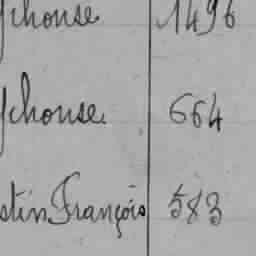 phonse 1496
phonse 664
stin François 583